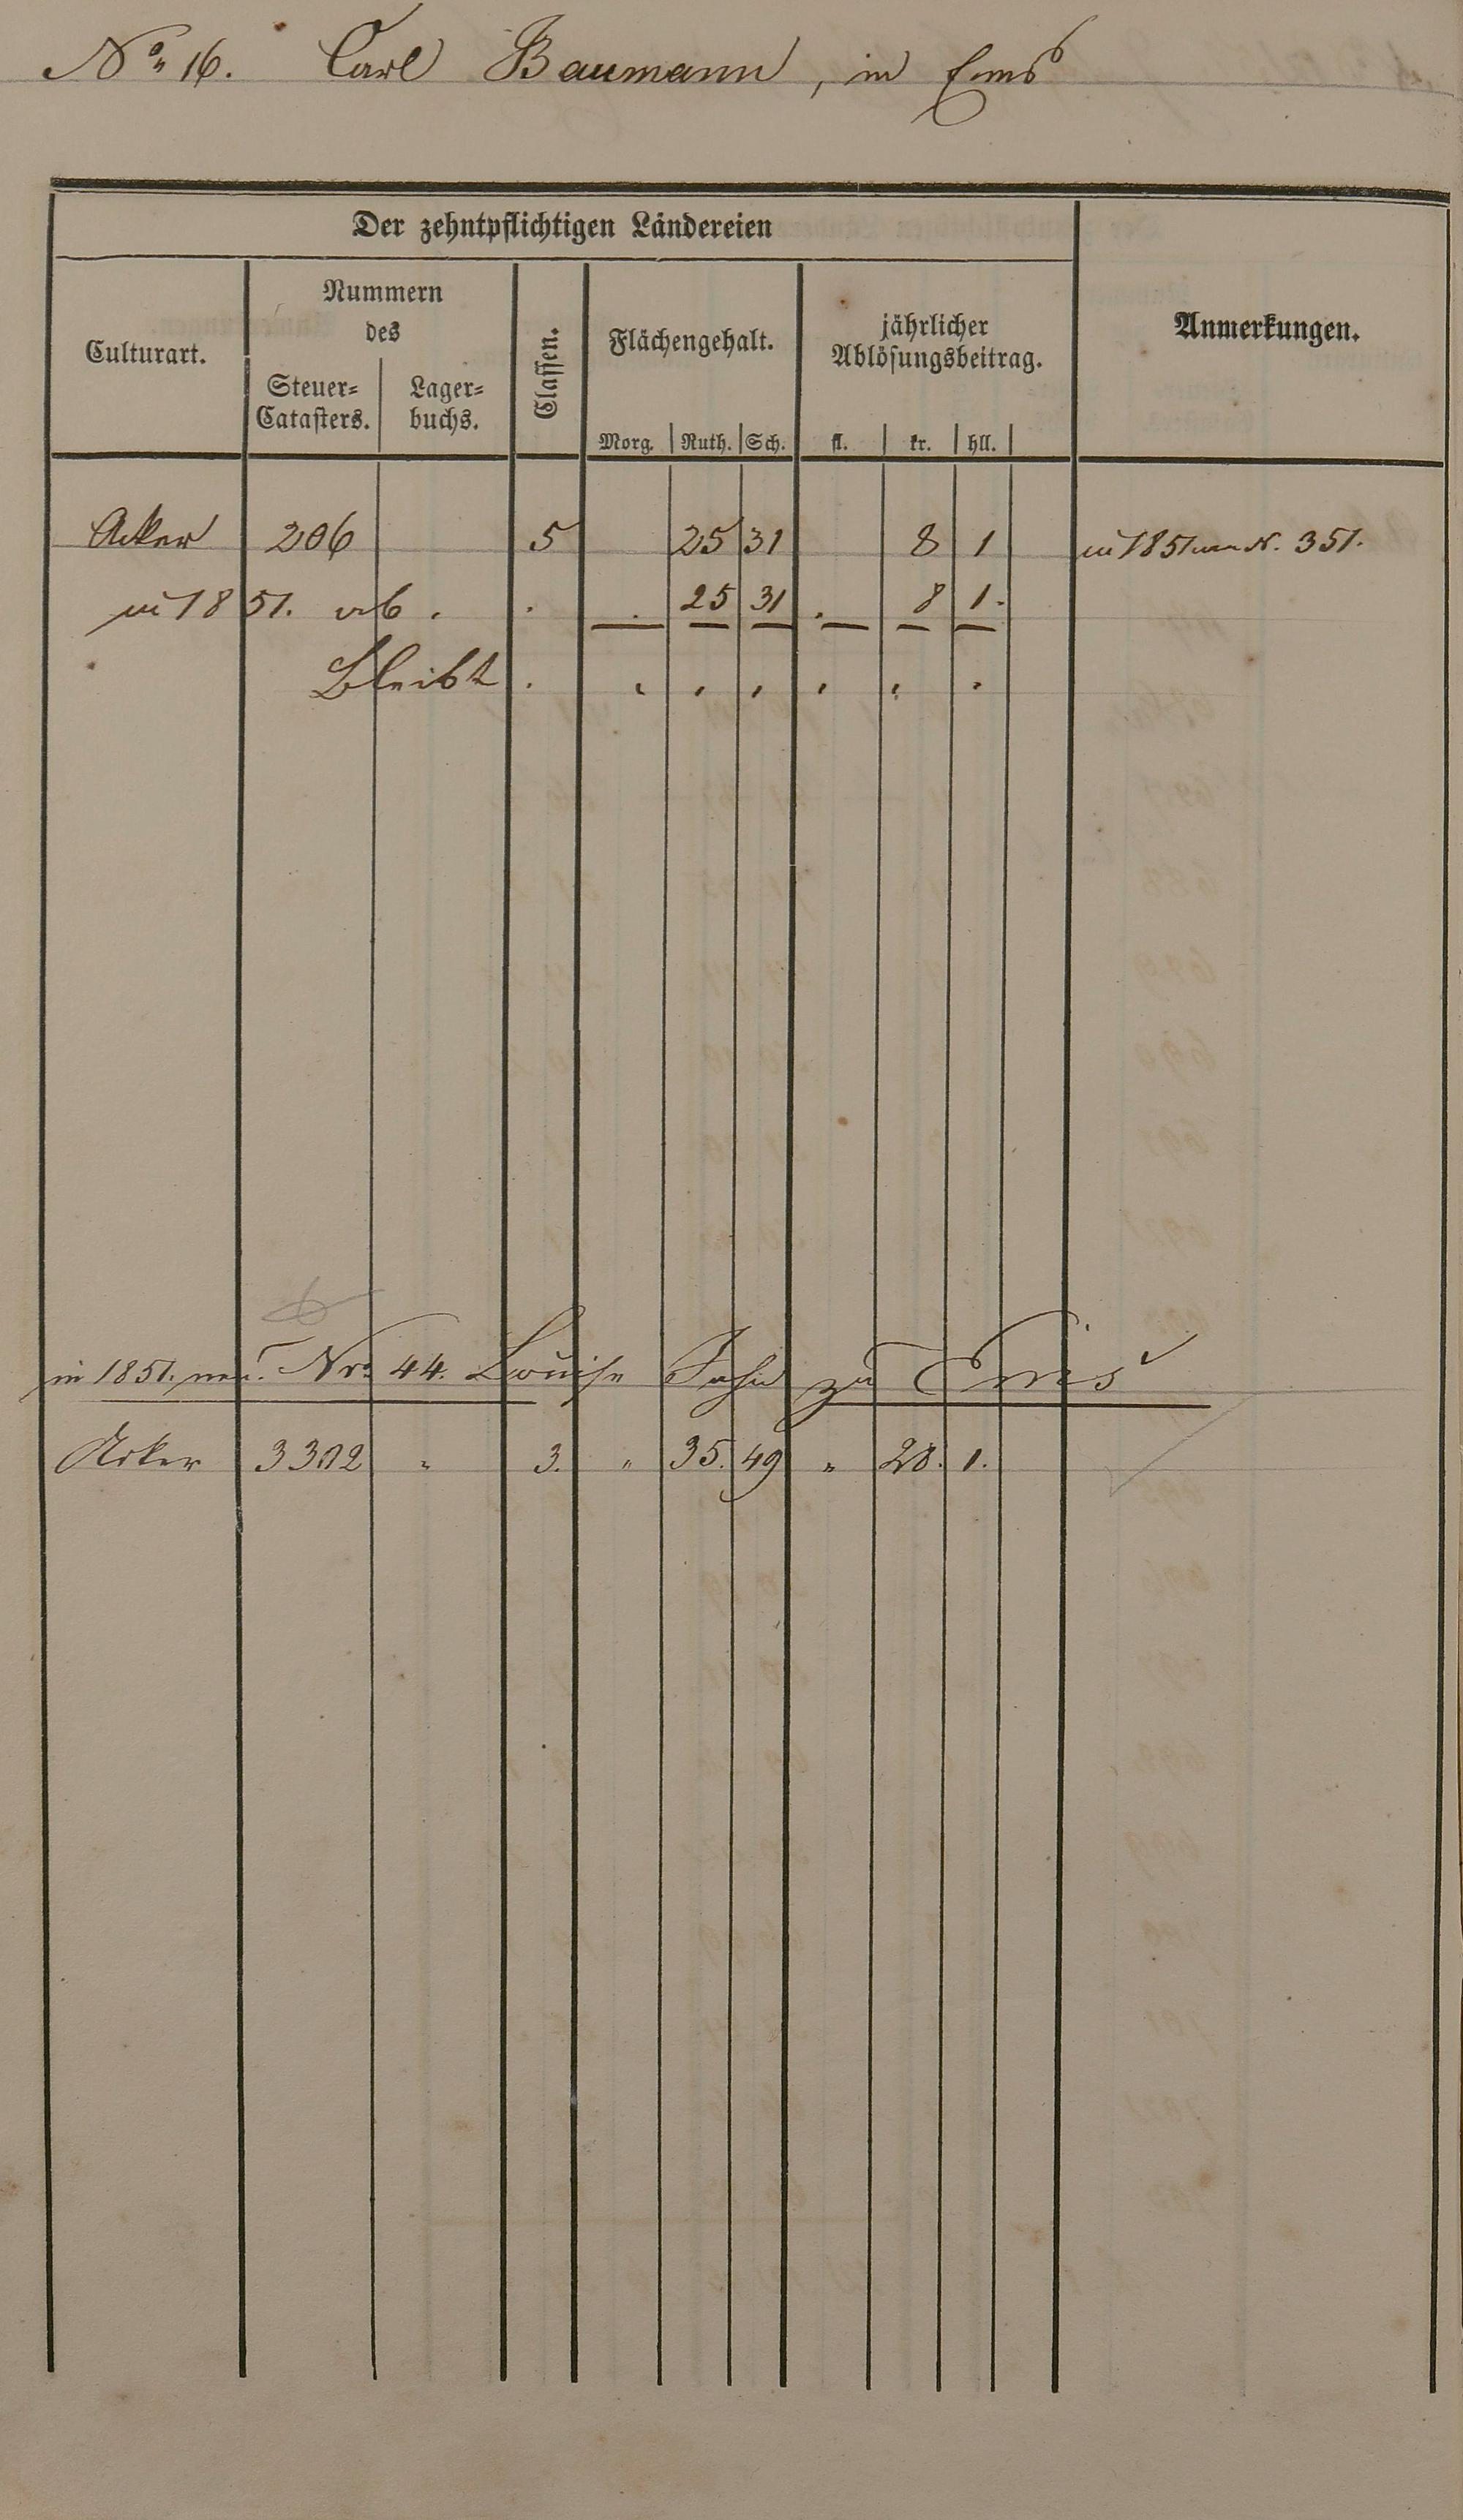 No. 16. Carl Baumann, in Ems
Der zehntpflichtigen Ländereien
Culturart.
Nummern
des
Steuer-
Catasters.
Lager-
buchs.
Classen.
Flächengehalt.
Morg. Ruth. Sch.
jährlicher
Ablösungsbeitrag.
fl. kr. hll.
Anmerkungen.
Acker 206 5 25 31 8 1 in 1851 N. 351.
in 1851. ab . . . 25 31 . 8 1.
Bleibt . . . . . . .
in 1851. neu. Nro 44. Louise zu Ems
Acker 3302 " 3. " 35. 49 " 28. 1.